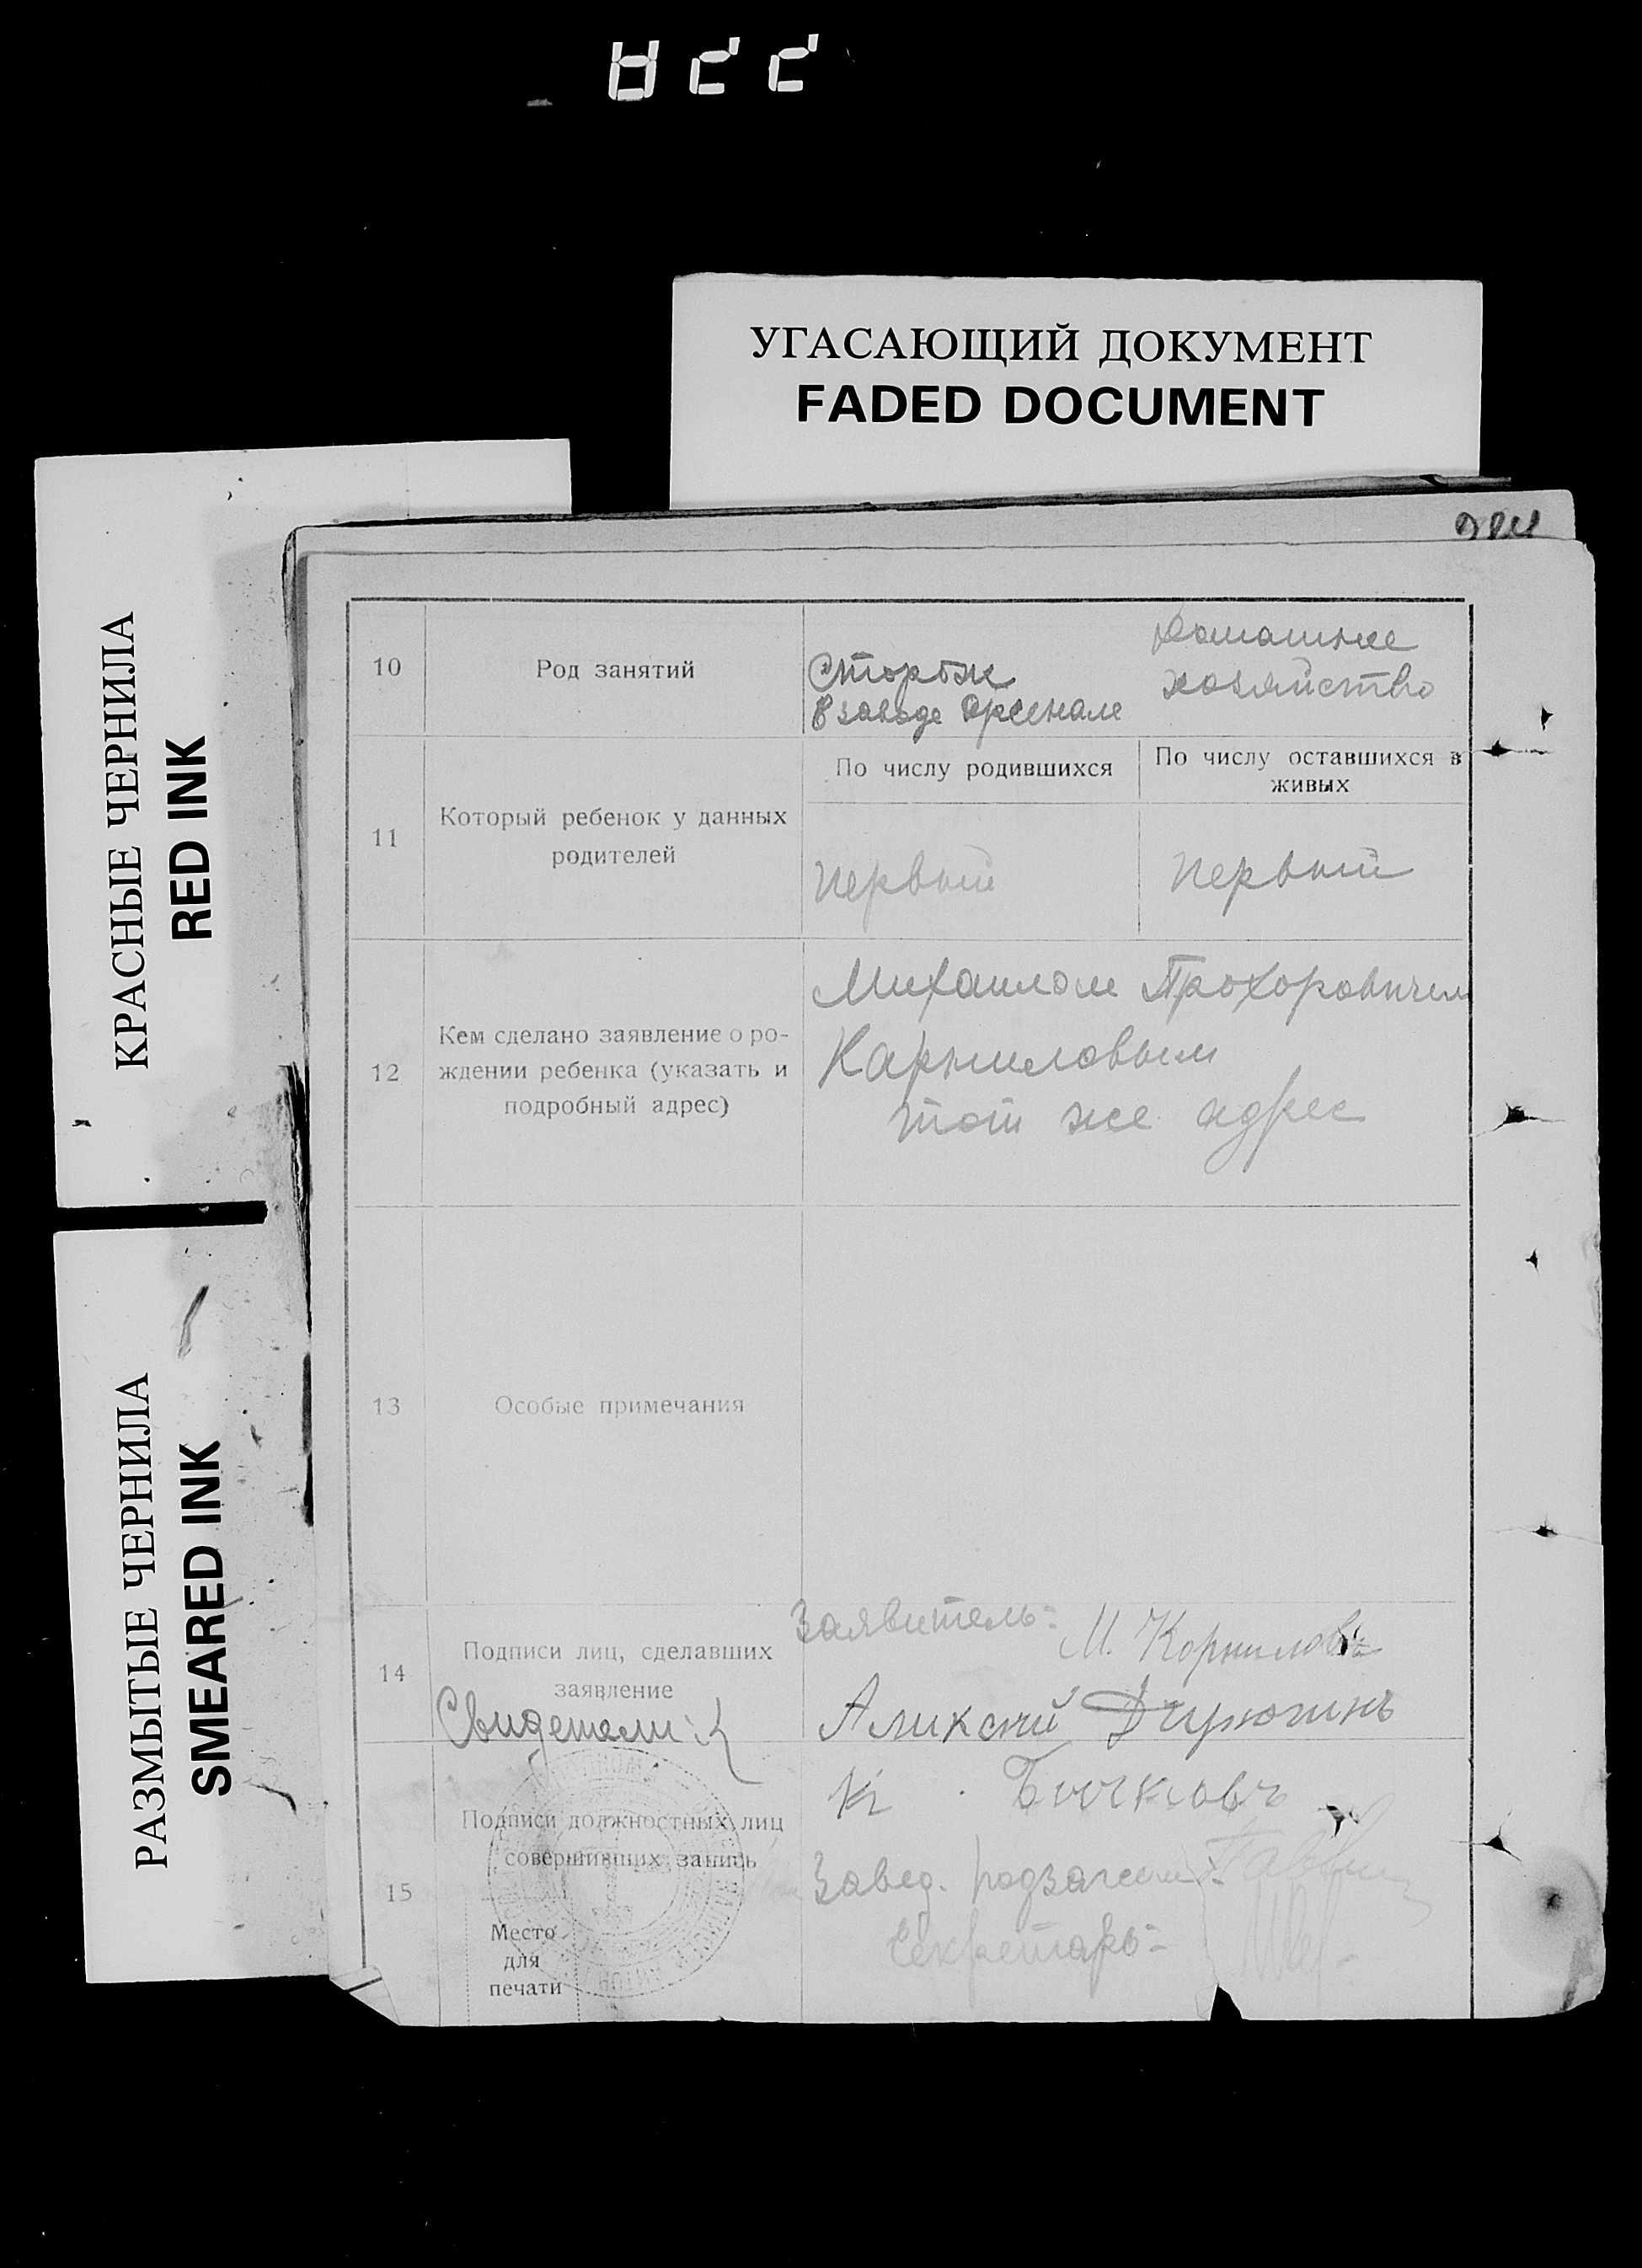 УГАСАЮЩИЙ ДОКУМЕНТ
FADED DOCUMENT
КРАСНЫЕ ЧЕРНИЛА
RED INK
РАЗМЫТЫЕ ЧЕРНИЛА
SMEARED INK
10
Род занятий
Сторож
в заводе Арсенале
Домашнее
хозяйство
11
Который ребенок у данных
родителей
По числу родившихся
По числу оставшихся в
живых
Первый
Первый
12
Кем сделано заявление о ро-
ждении ребенка (указать и
подробный адрес)
Михаилом Прохоровичем
Карниловым
тот же адрес
13
Особые примечания
14
Подписи лиц, сделавших
заявление
Свидетели:
Заявитель:
М. Корнилов
Аликсий
К. Бычковъ
15
Подписи должностных лиц
совершивших запись
Место
для
печати
Завед. подзагсом:
Секретарь: